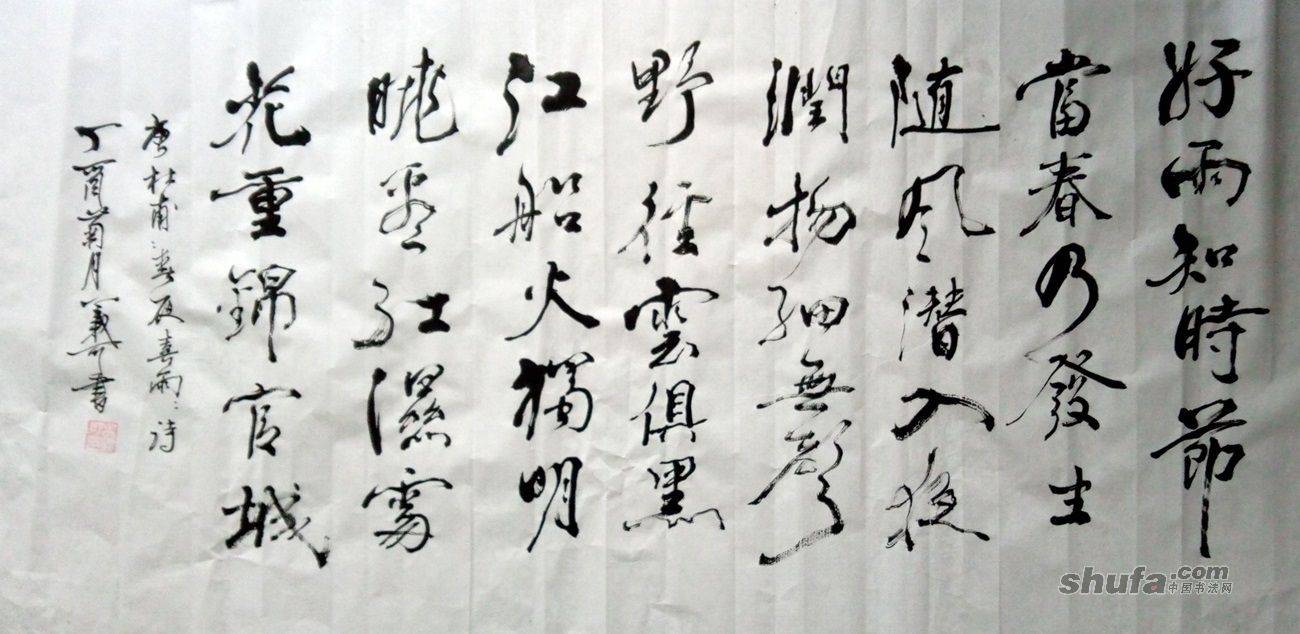 好雨知時節
當春乃發生
随风潜入夜
潤物細無聲
野徑雲俱黑
江船火獨明
曉看红濕處
花重錦官城
唐杜甫春夜喜雨詩
丁酉菊月義可書
shufa.com
中国书法网